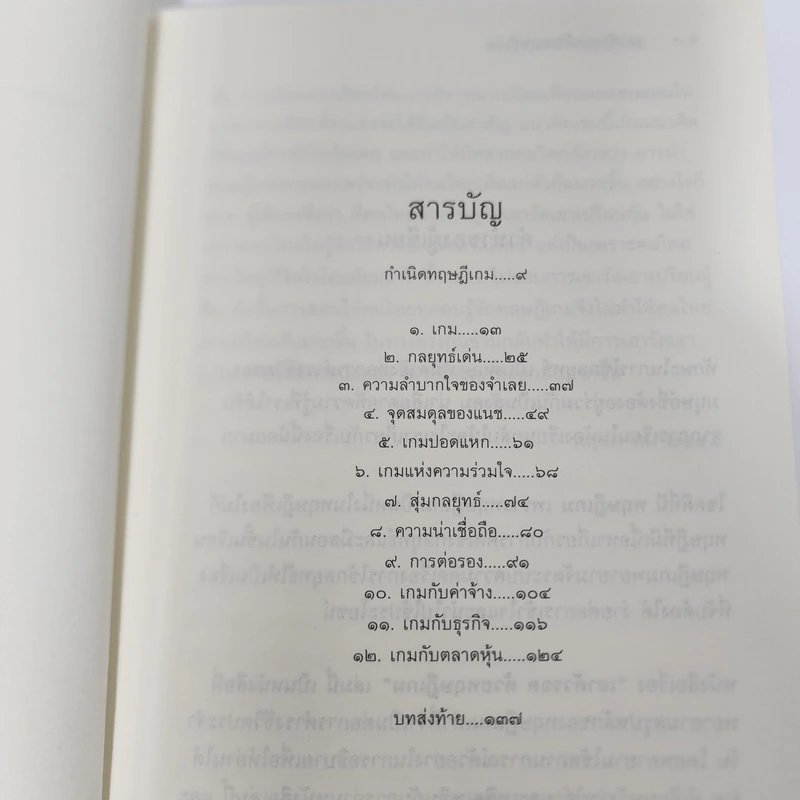 สารบัญ
กำเนิดทฤษฎีเกม.....๙
๑. เกม.....๑๓
๒. กลยุทธ์เด่น.....๒๕
๓. ความลำบากใจของจำเลย.....๓๗
๔. จุดสมดุลของแนช.....๔๙
๕. เกมปอดแหก.....๖๑
๖. เกมแห่งความร่วมใจ.....๖๘
๗. สุ่มกลยุทธ์.....๗๔
๘. ความน่าเชื่อถือ.....๘๐
๙. การต่อรอง.....๙๑
๑๐. เกมกับค่าจ้าง.....๑๐๔
๑๑. เกมกับธุรกิจ.....๑๑๖
๑๒. เกมกับตลาดหุ้น.....๑๒๔
บทส่งท้าย....๑๓๗